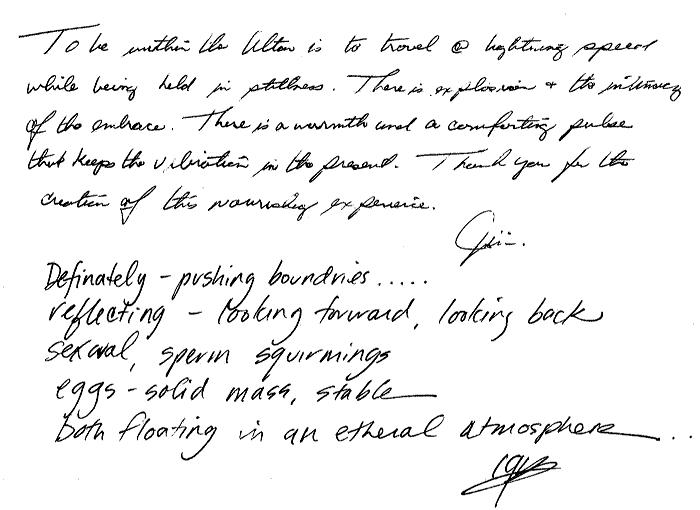 To be within the Altar is to travel @ lightning speed
while being held in stillness. There is explosion + the intimacy
of the embrace. There is a warmth and a comforting pulse
that keeps the vibration in the present. Thank you for the
creation of this nourishing experience.
Definately - pushing boundries .....
reflecting - looking forward, looking back
sexual, sperm squirmings
eggs - solid mass, stable
both floating in an etheral atmosphere...